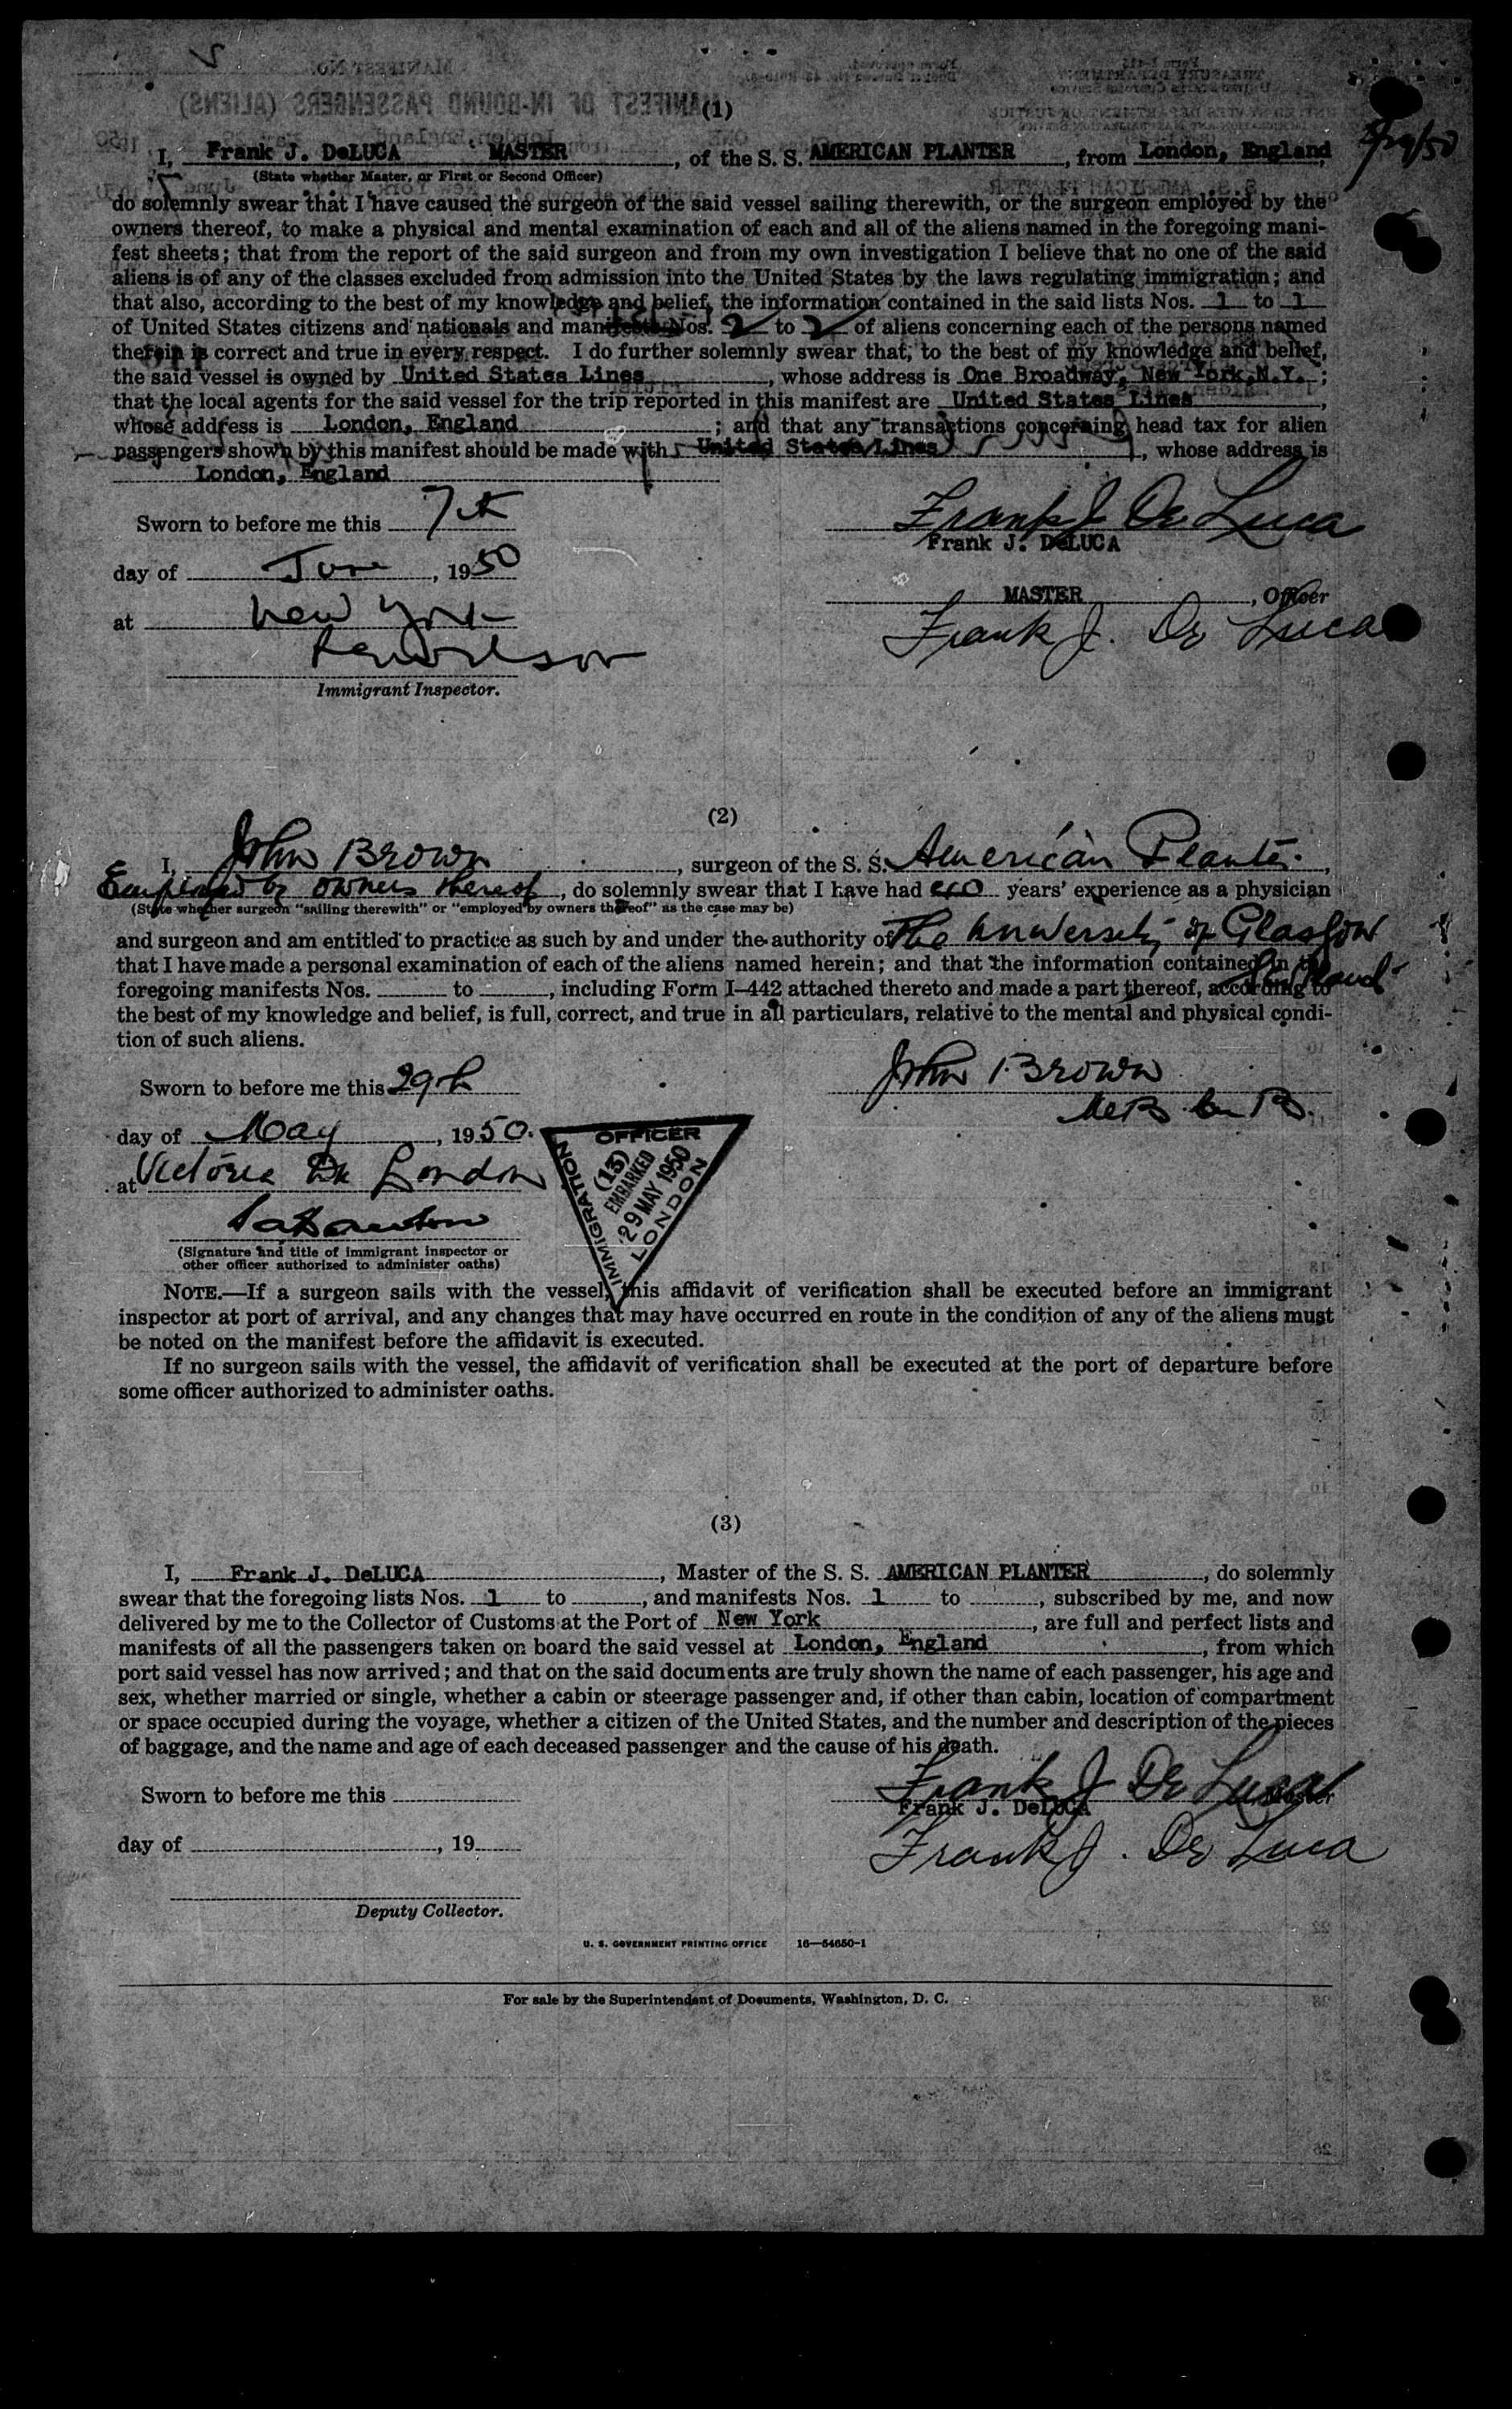 (1)
I, Frank J. DeLUCA MASTER, of the S. S. AMERICAN PLANTER, from London, England
(State whether Master, or First or Second Officer)
do solemnly swear that I have caused the surgeon of the said vessel sailing therewith, or the surgeon employed by the
owners thereof, to make a physical and mental examination of each and all of the aliens named in the foregoing mani-
fest sheets; that from the report of the said surgeon and from my own investigation I believe that no one of the said
aliens is of any of the classes excluded from admission into the United States by the laws regulating immigration; and
that also, according to the best of my knowledge and belief, the information contained in the said lists Nos. 1 to 1
of United States citizens and nationals and manifests Nos. 2 to 2 of aliens concerning each of the persons named
therein is correct and true in every respect. I do further solemnly swear that, to the best of my knowledge and belief,
the said vessel is owned by United States Lines, whose address is One Broadway, New York, N.Y.;
that the local agents for the said vessel for the trip reported in this manifest are United States Lines,
whose address is London, England; and that any transactions concerning head tax for alien
passengers shown by this manifest should be made with United States Lines, whose address is
London, England
Sworn to before me this 7th
Frank J. De Luca
Frank J. DeLUCA
day of June, 1950
MASTER, Officer
at New York
Frank J. De Luca
Immigrant Inspector.
(2)
I, John Brown, surgeon of the S. S. American Planter,
Employed by owners thereof, do solemnly swear that I have had 40 years' experience as a physician
(State whether surgeon "sailing therewith" or "employed by owners thereof" as the case may be)
and surgeon and am entitled to practice as such by and under the authority of The University of Glasgow
Scotland
that I have made a personal examination of each of the aliens named herein; and that the information contained in the
foregoing manifests Nos. to , including Form I-442 attached thereto and made a part thereof, according to
the best of my knowledge and belief, is full, correct, and true in all particulars, relative to the mental and physical condi-
tion of such aliens.
Sworn to before me this 29th
John Brown
day of May, 1950.
at Victoria Dk London
IMMIGRATION OFFICER
(13)
EMBARKED
29 MAY 1950
LONDON
(Signature and title of immigrant inspector or
other officer authorized to administer oaths)
NOTE.—If a surgeon sails with the vessel, this affidavit of verification shall be executed before an immigrant
inspector at port of arrival, and any changes that may have occurred en route in the condition of any of the aliens must
be noted on the manifest before the affidavit is executed.
If no surgeon sails with the vessel, the affidavit of verification shall be executed at the port of departure before
some officer authorized to administer oaths.
(3)
I, Frank J. DeLUCA, Master of the S. S. AMERICAN PLANTER, do solemnly
swear that the foregoing lists Nos. 1 to , and manifests Nos. 1 to , subscribed by me, and now
delivered by me to the Collector of Customs at the Port of New York, are full and perfect lists and
manifests of all the passengers taken on board the said vessel at London, England, from which
port said vessel has now arrived; and that on the said documents are truly shown the name of each passenger, his age and
sex, whether married or single, whether a cabin or steerage passenger and, if other than cabin, location of compartment
or space occupied during the voyage, whether a citizen of the United States, and the number and description of the pieces
of baggage, and the name and age of each deceased passenger and the cause of his death.
Sworn to before me this
Frank J De Luca
Frank J. DeLUCA Master
day of , 19
Frank J. De Luca
Deputy Collector.
U. S. GOVERNMENT PRINTING OFFICE 16—54650-1
For sale by the Superintendent of Documents, Washington, D. C.